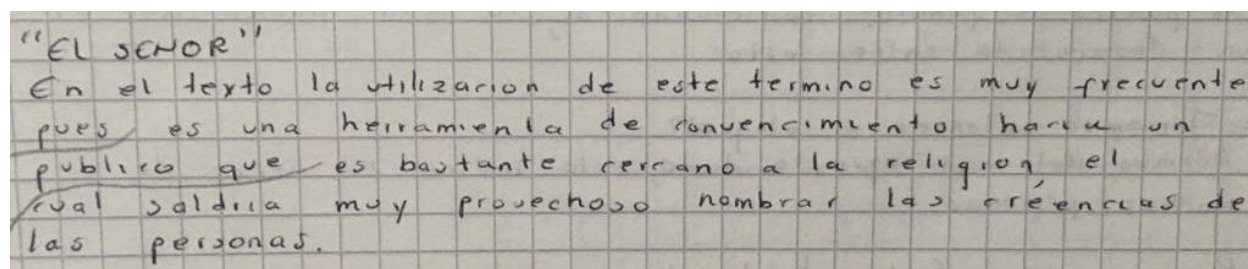 "EL SEÑOR"
En el texto la utilizacion de este termino es muy frecuente
pues es una herramienta de convencimiento hacia un
publico que es bastante cercano a la religion el
cual saldria muy provechoso nombrar las créencias de
las personas.